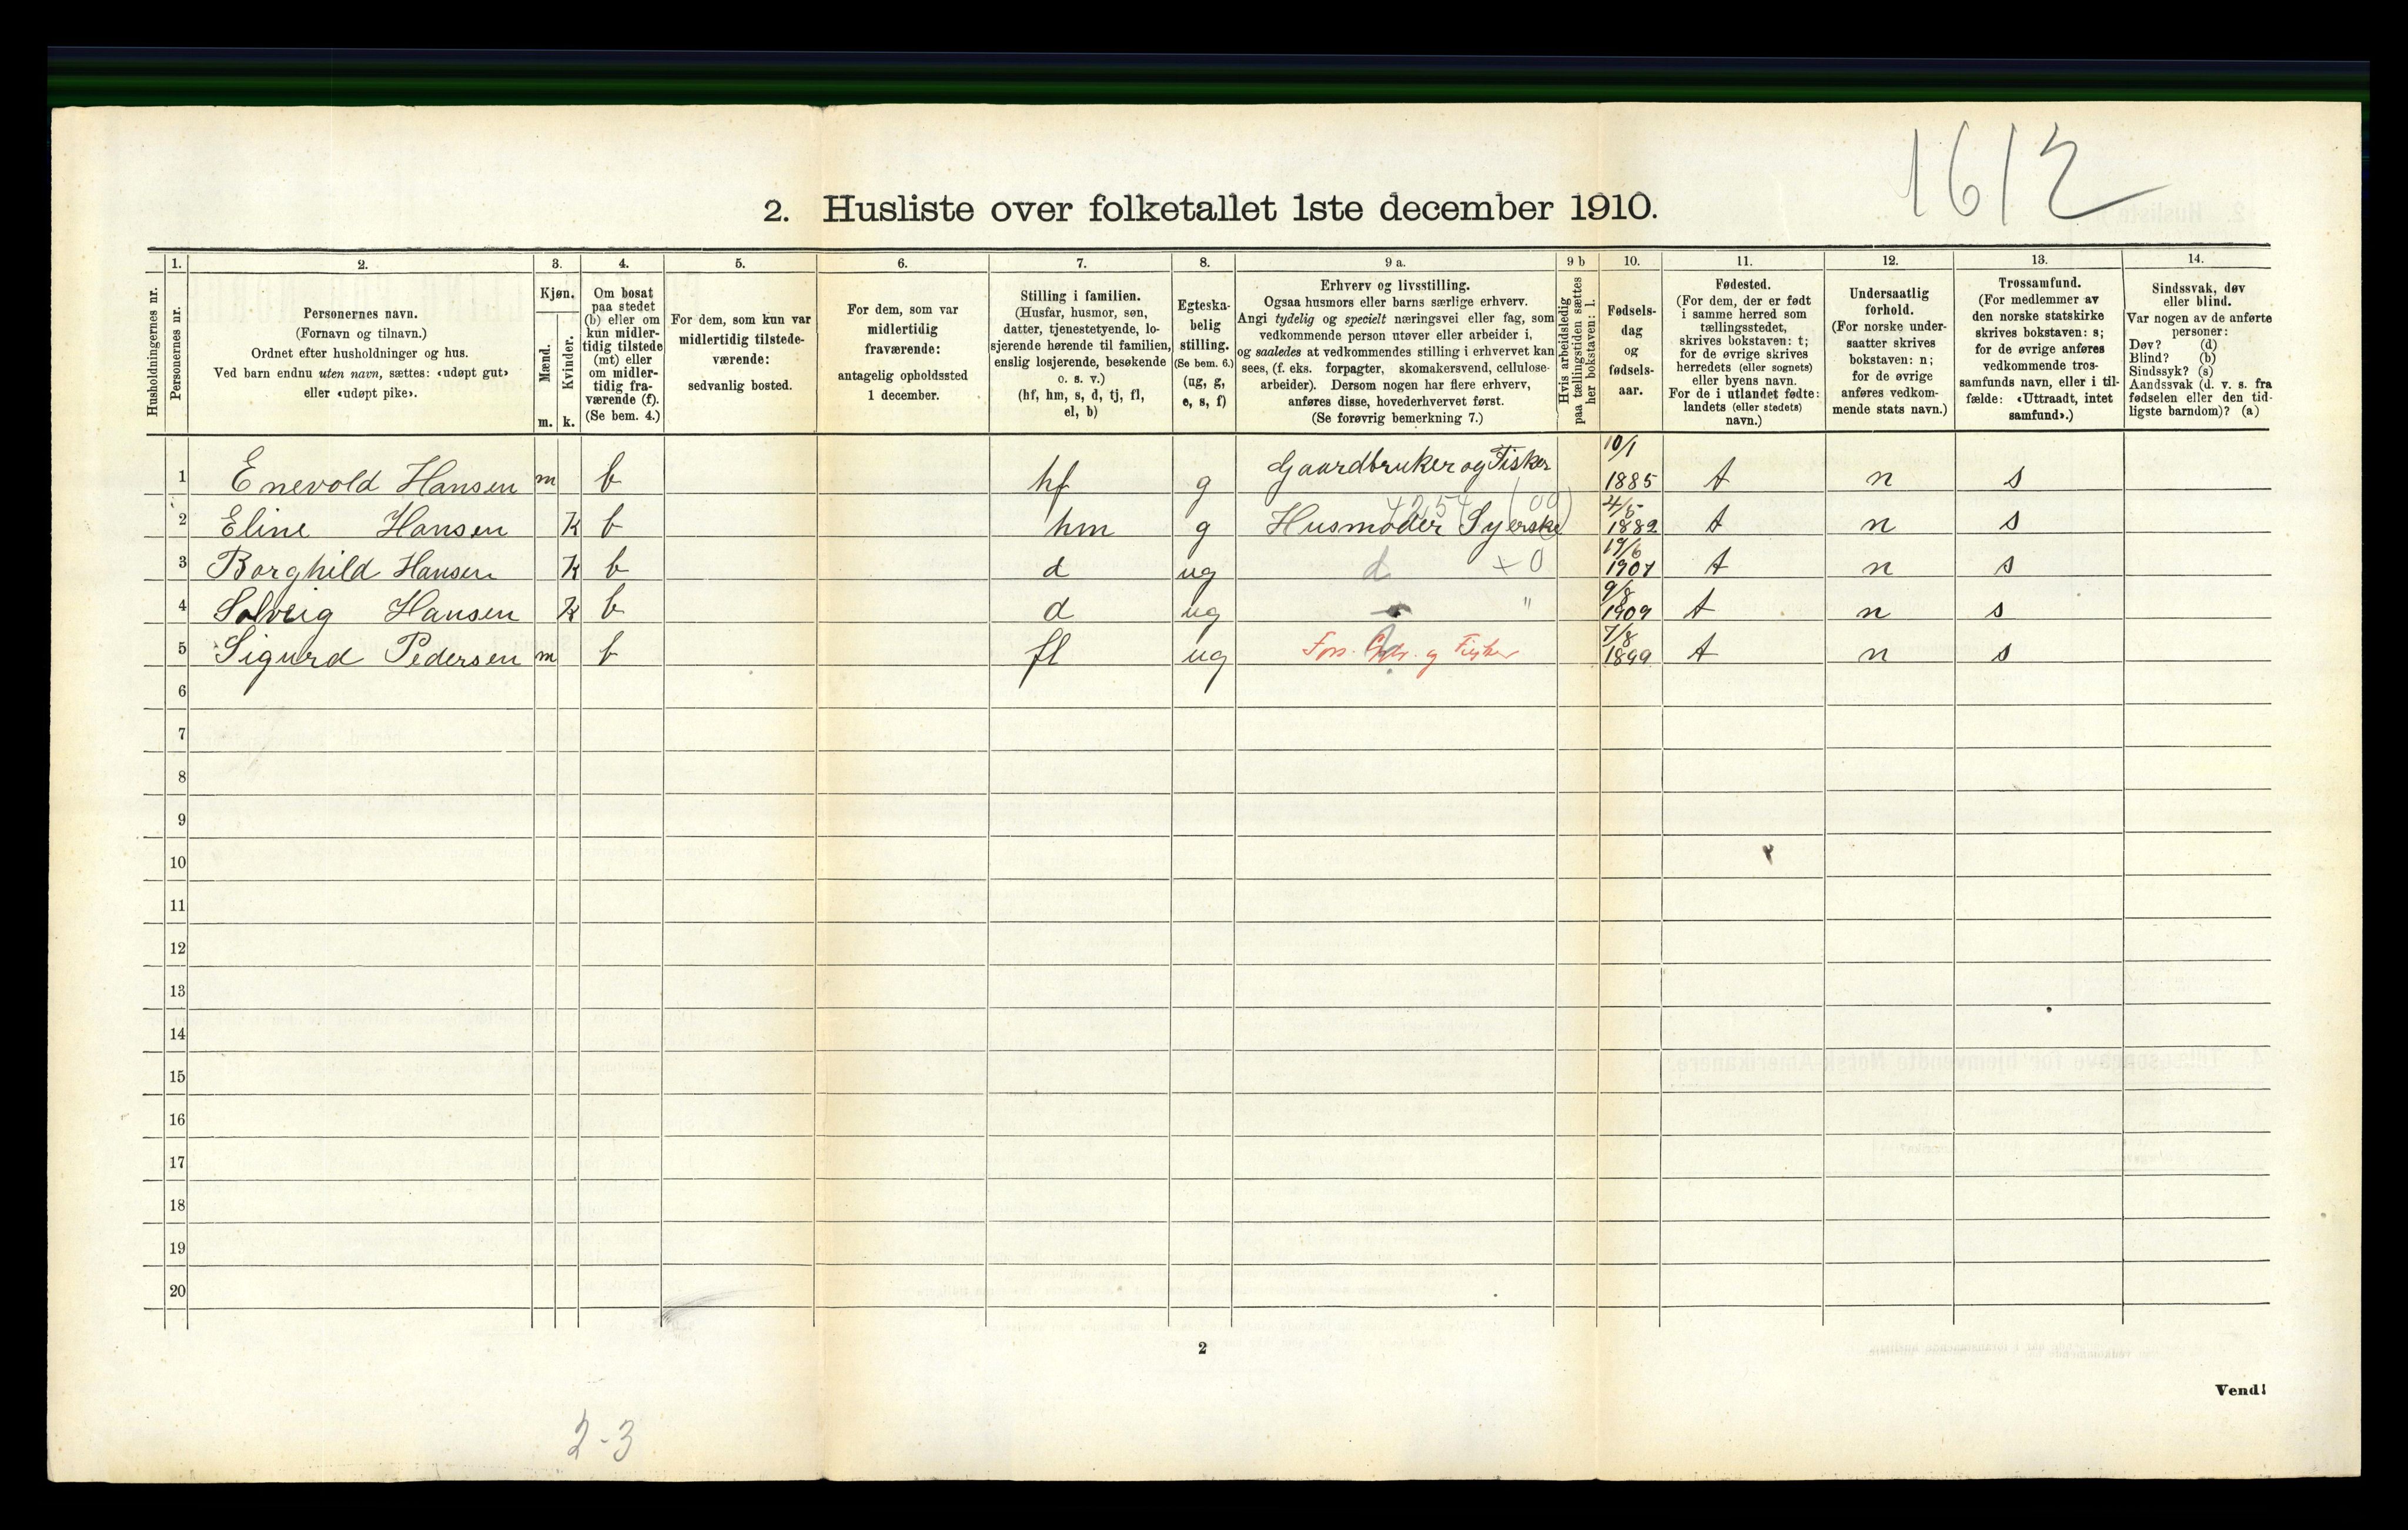 1612
2. Husliste over folketallet 1ste december 1910.
1. 2. 3. 4. 5. 6. 7. 8. 9 a. 9 b 10. 11. 12. 13. 14.
Husholdningernes nr.
Personernes nr.
Personernes navn.
(Fornavn og tilnavn.)
Ordnet efter husholdninger og hus.
Ved barn endnu uten navn, sættes: «udøpt gut»
eller «udøpt pike».
Kjøn.
Mænd.
Kvinder.
m. k.
Om bosat
paa stedet
(b) eller om
kun midler-
tidig tilstede
(mt) eller
om midler-
tidig fra-
værende (f).
(Se bem. 4.)
For dem, som kun var
midlertidig tilstede-
værende:
sedvanlig bosted.
For dem, som var
midlertidig
fraværende:
antagelig opholdssted
1 december.
Stilling i familien.
(Husfar, husmor, søn,
datter, tjenestetyende, lo-
sjerende hørende til familien,
enslig losjerende, besøkende
o. s. v.)
(hf, hm, s, d, tj, fl,
el, b)
Egteska-
belig
stilling.
(Se bem. 6.)
(ug, g,
e, s, f)
Erhverv og livsstilling.
Ogsaa husmors eller barns særlige erhverv.
Angi tydelig og specielt næringsvei eller fag, som
vedkommende person utøver eller arbeider i,
og saaledes at vedkommendes stilling i erhvervet kan
sees, (f. eks. forpagter, skomakersvend, cellulose-
arbeider). Dersom nogen har flere erhverv,
anføres disse, hovederhvervet først.
(Se forøvrig bemerkning 7.)
Hvis arbeidsledig
paa tællingstiden sættes
her bokstaven: l.
Fødsels-
dag
og
fødsels-
aar.
Fødested.
(For dem, der er født
i samme herred som
tællingsstedet,
skrives bokstaven: t;
for de øvrige skrives
herredets (eller sognets)
eller byens navn.
For de i utlandet fødte:
landets (eller stedets)
navn.)
Undersaatlig
forhold.
(For norske under-
saatter skrives
bokstaven: n;
for de øvrige
anføres vedkom-
mende stats navn.)
Trossamfund.
(For medlemmer av
den norske statskirke
skrives bokstaven: s;
for de øvrige anføres
vedkommende tros-
samfunds navn, eller i til-
fælde: «Uttraadt, intet
samfund».)
Sindssvak, døv
eller blind.
Var nogen av de anførte
personer:
Døv? (d)
Blind? (b)
Sindssyk? (s)
Aandssvak (d. v. s. fra
fødselen eller den tid-
ligste barndom)? (a)
1 Enevold Hansen m b hf g Gaardbruker og Fisker 10/1 1885 t n s
2 Eline Hansen K b hm g Husmoder Syerske 4/5 1882 t n s
3 Borghild Hansen K b d ug d + 0 19/6 1907 t n s
4 Solveig Hansen K b d ug " 9/8 1909 t n s
5 Sigurd Pedersen m b fl ug Fors. og Fisker 7/8 1899 t n s
6
7
8
9
10
11
12
13
14
15
16
17
18
19
20
2
Vend!
2-3